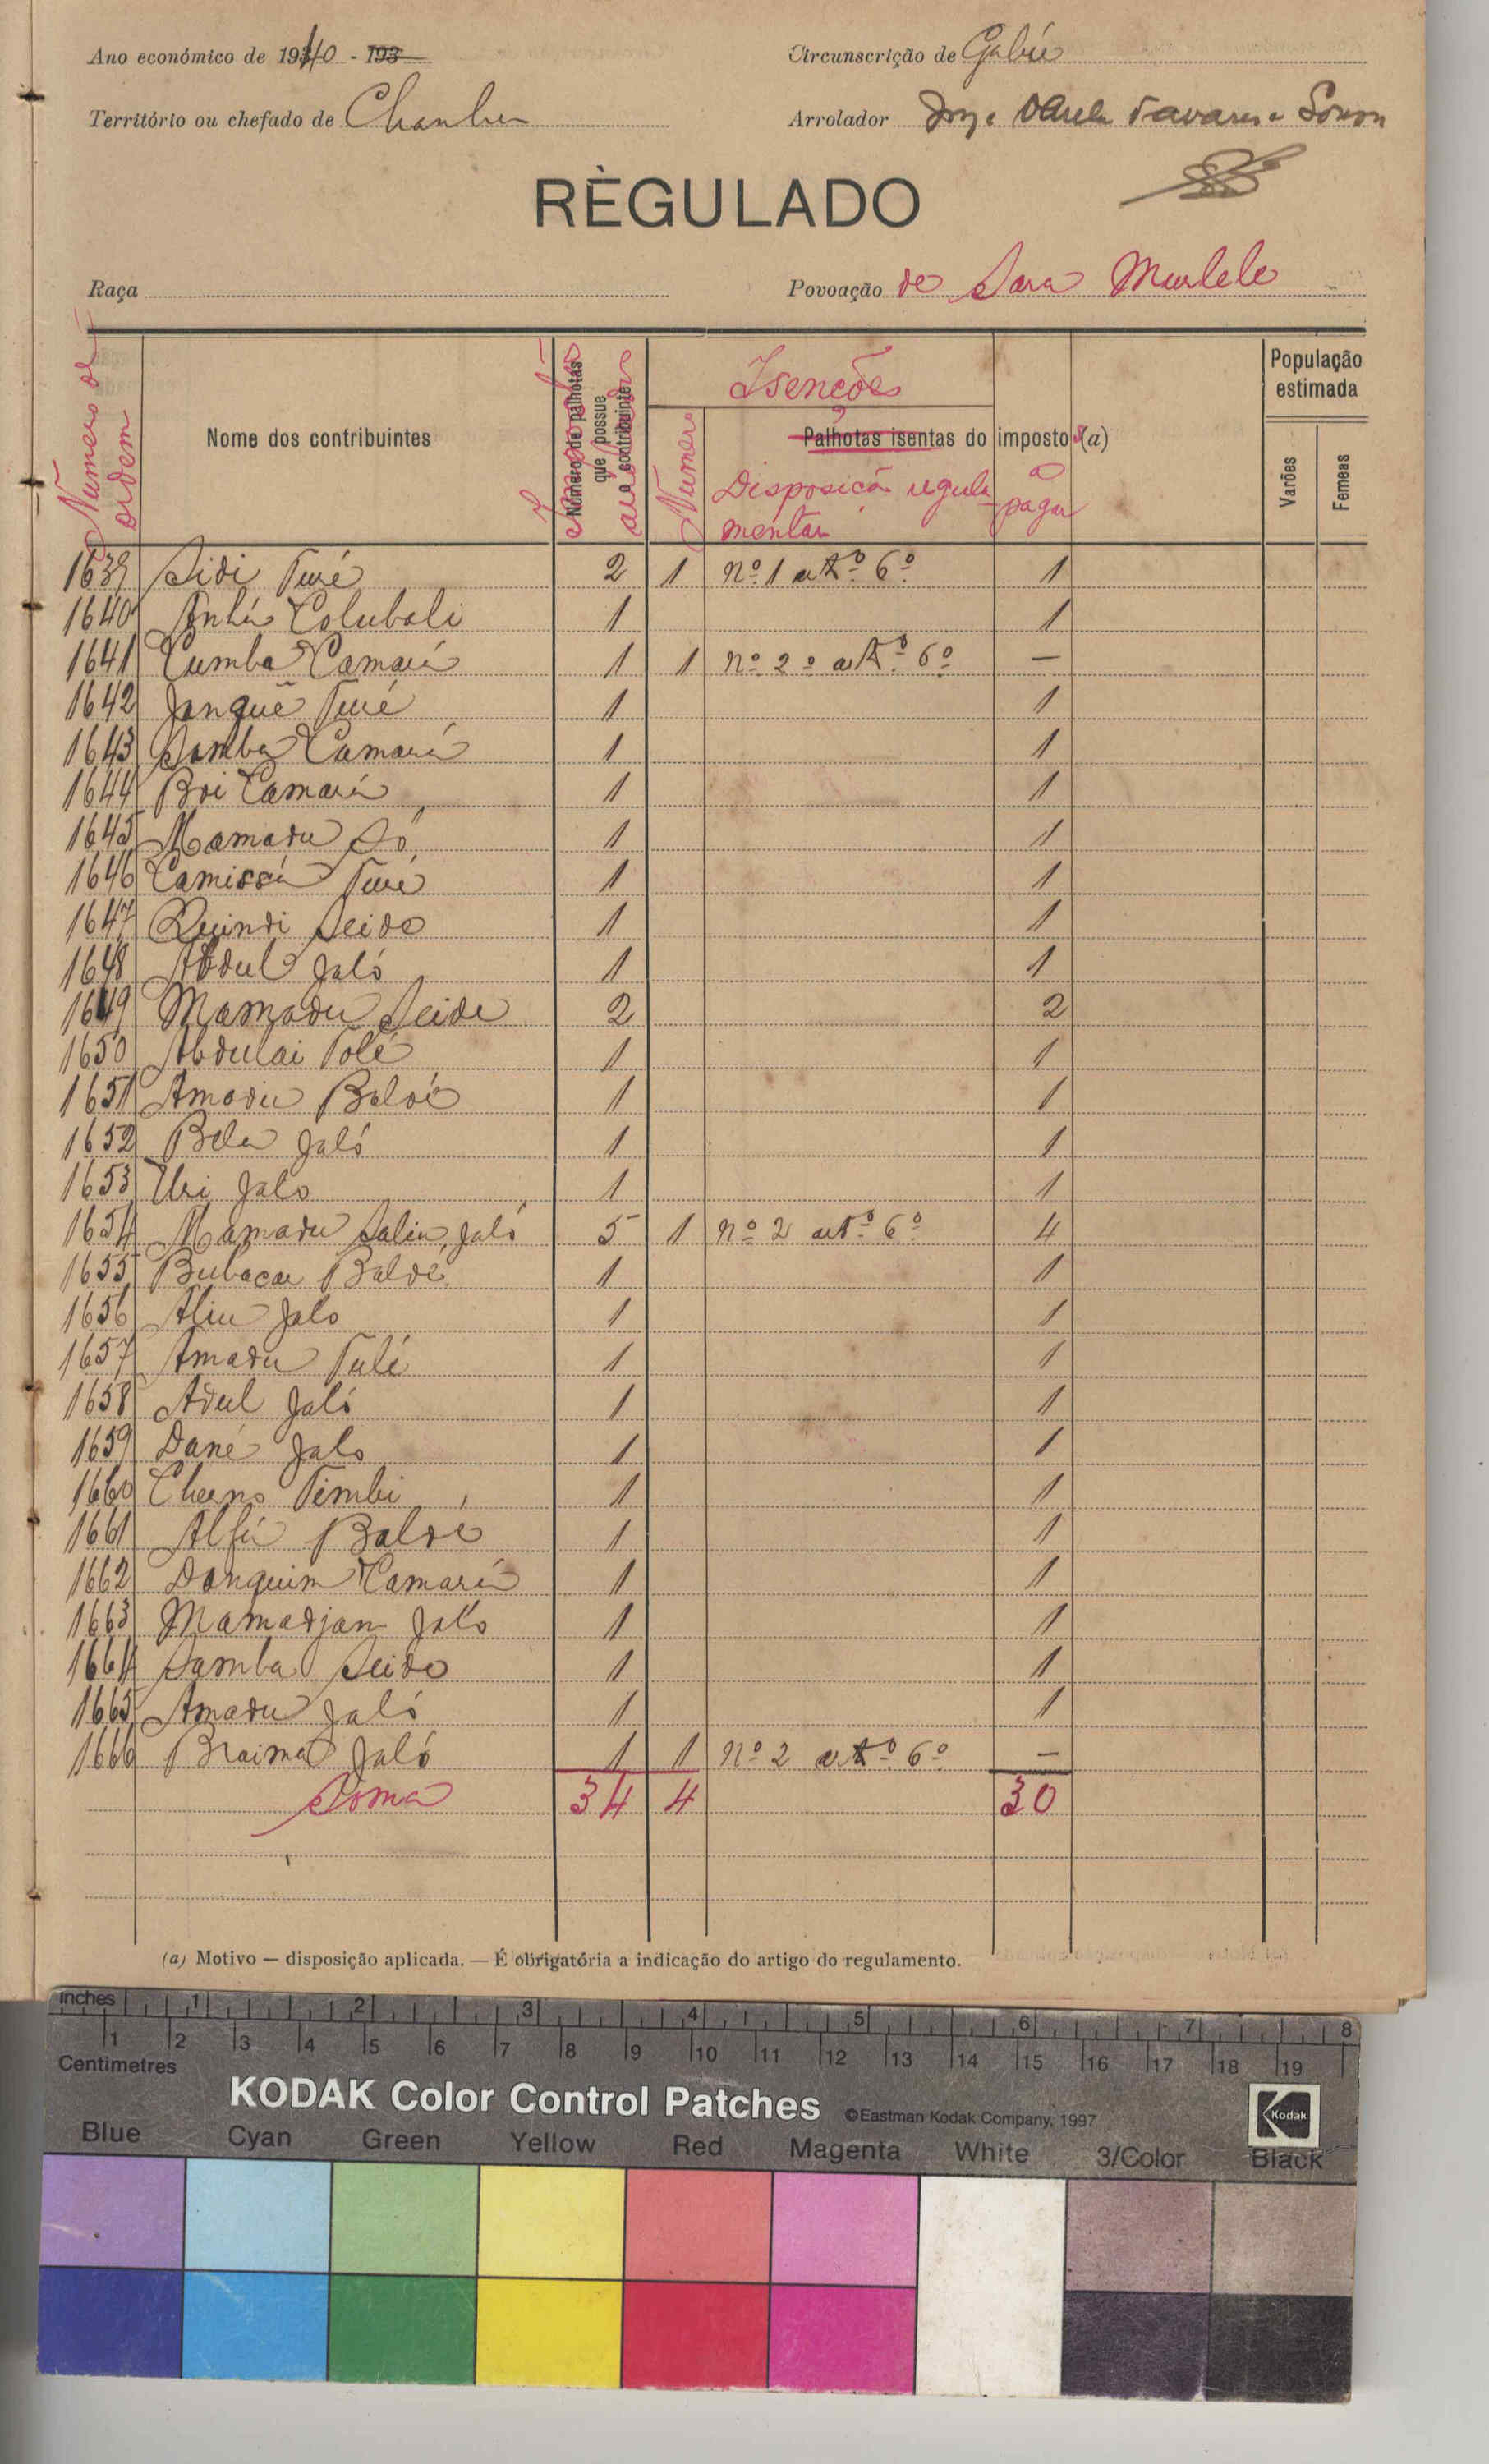 Ano económico de 1940 - 193
Circunscrição de Gabú
Território ou chefado de Chanha
Arrolador Tavares e Sousa
RÈGULADO
Raça
Povoação de Sara
Numero de ordem
Nome dos contribuintes
Número de palhotas que possue o contribuinte
Isenções
Numero
Palhotas isentas do imposto (a)
Disposição regulamentar
a pagar
População estimada
Varões
Femeas
1639 Sidi Turé 2 1 nº 1 artº 6º 1
1640 Anhú Colubali 1 1
1641 Cumba Camará 1 1 nº 2º artº 6º —
1642 Janqué Turé 1 1
1643 Samba Camará 1 1
1644 Boi Camará 1 1
1645 Mamadu Só 1 1
1646 Camissá Turé 1 1
1647 Quindi Seide 1 1
1648 Abdul Jaló 1 1
1649 Mamadu Seide 2 2
1650 Abdulai Tolé 1 1
1651 Amadu Baldé 1 1
1652 Bela Jaló 1 1
1653 Uri Jalo 1 1
1654 Mamadu Saliu Jaló 5 1 nº 2 artº 6º 4
1655 Bubacar Baldé 1 1
1656 Aliu Jalo 1 1
1657 Amadu Tulé 1 1
1658 Adul Jaló 1 1
1659 Dané Jalo 1 1
1660 Cherno Timbi 1 1
1661 Alfá Baldé 1 1
1662 Danquim Camará 1 1
1663 Mamadjam Jaló 1 1
1664 Samba Seide 1 1
1665 Amadu Jaló 1 1
1666 Braima Jaló 1 1 nº 2 artº 6º —
Soma 34 4 30
(a) Motivo — disposição aplicada. — É obrigatória a indicação do artigo do regulamento.
inches 1 2 3 4 5 6 7 8
1 2 3 4 5 6 7 8 9 10 11 12 13 14 15 16 17 18 19
Centimetres
KODAK Color Control Patches ©Eastman Kodak Company, 1997 Kodak
Blue Cyan Green Yellow Red Magenta White 3/Color Black